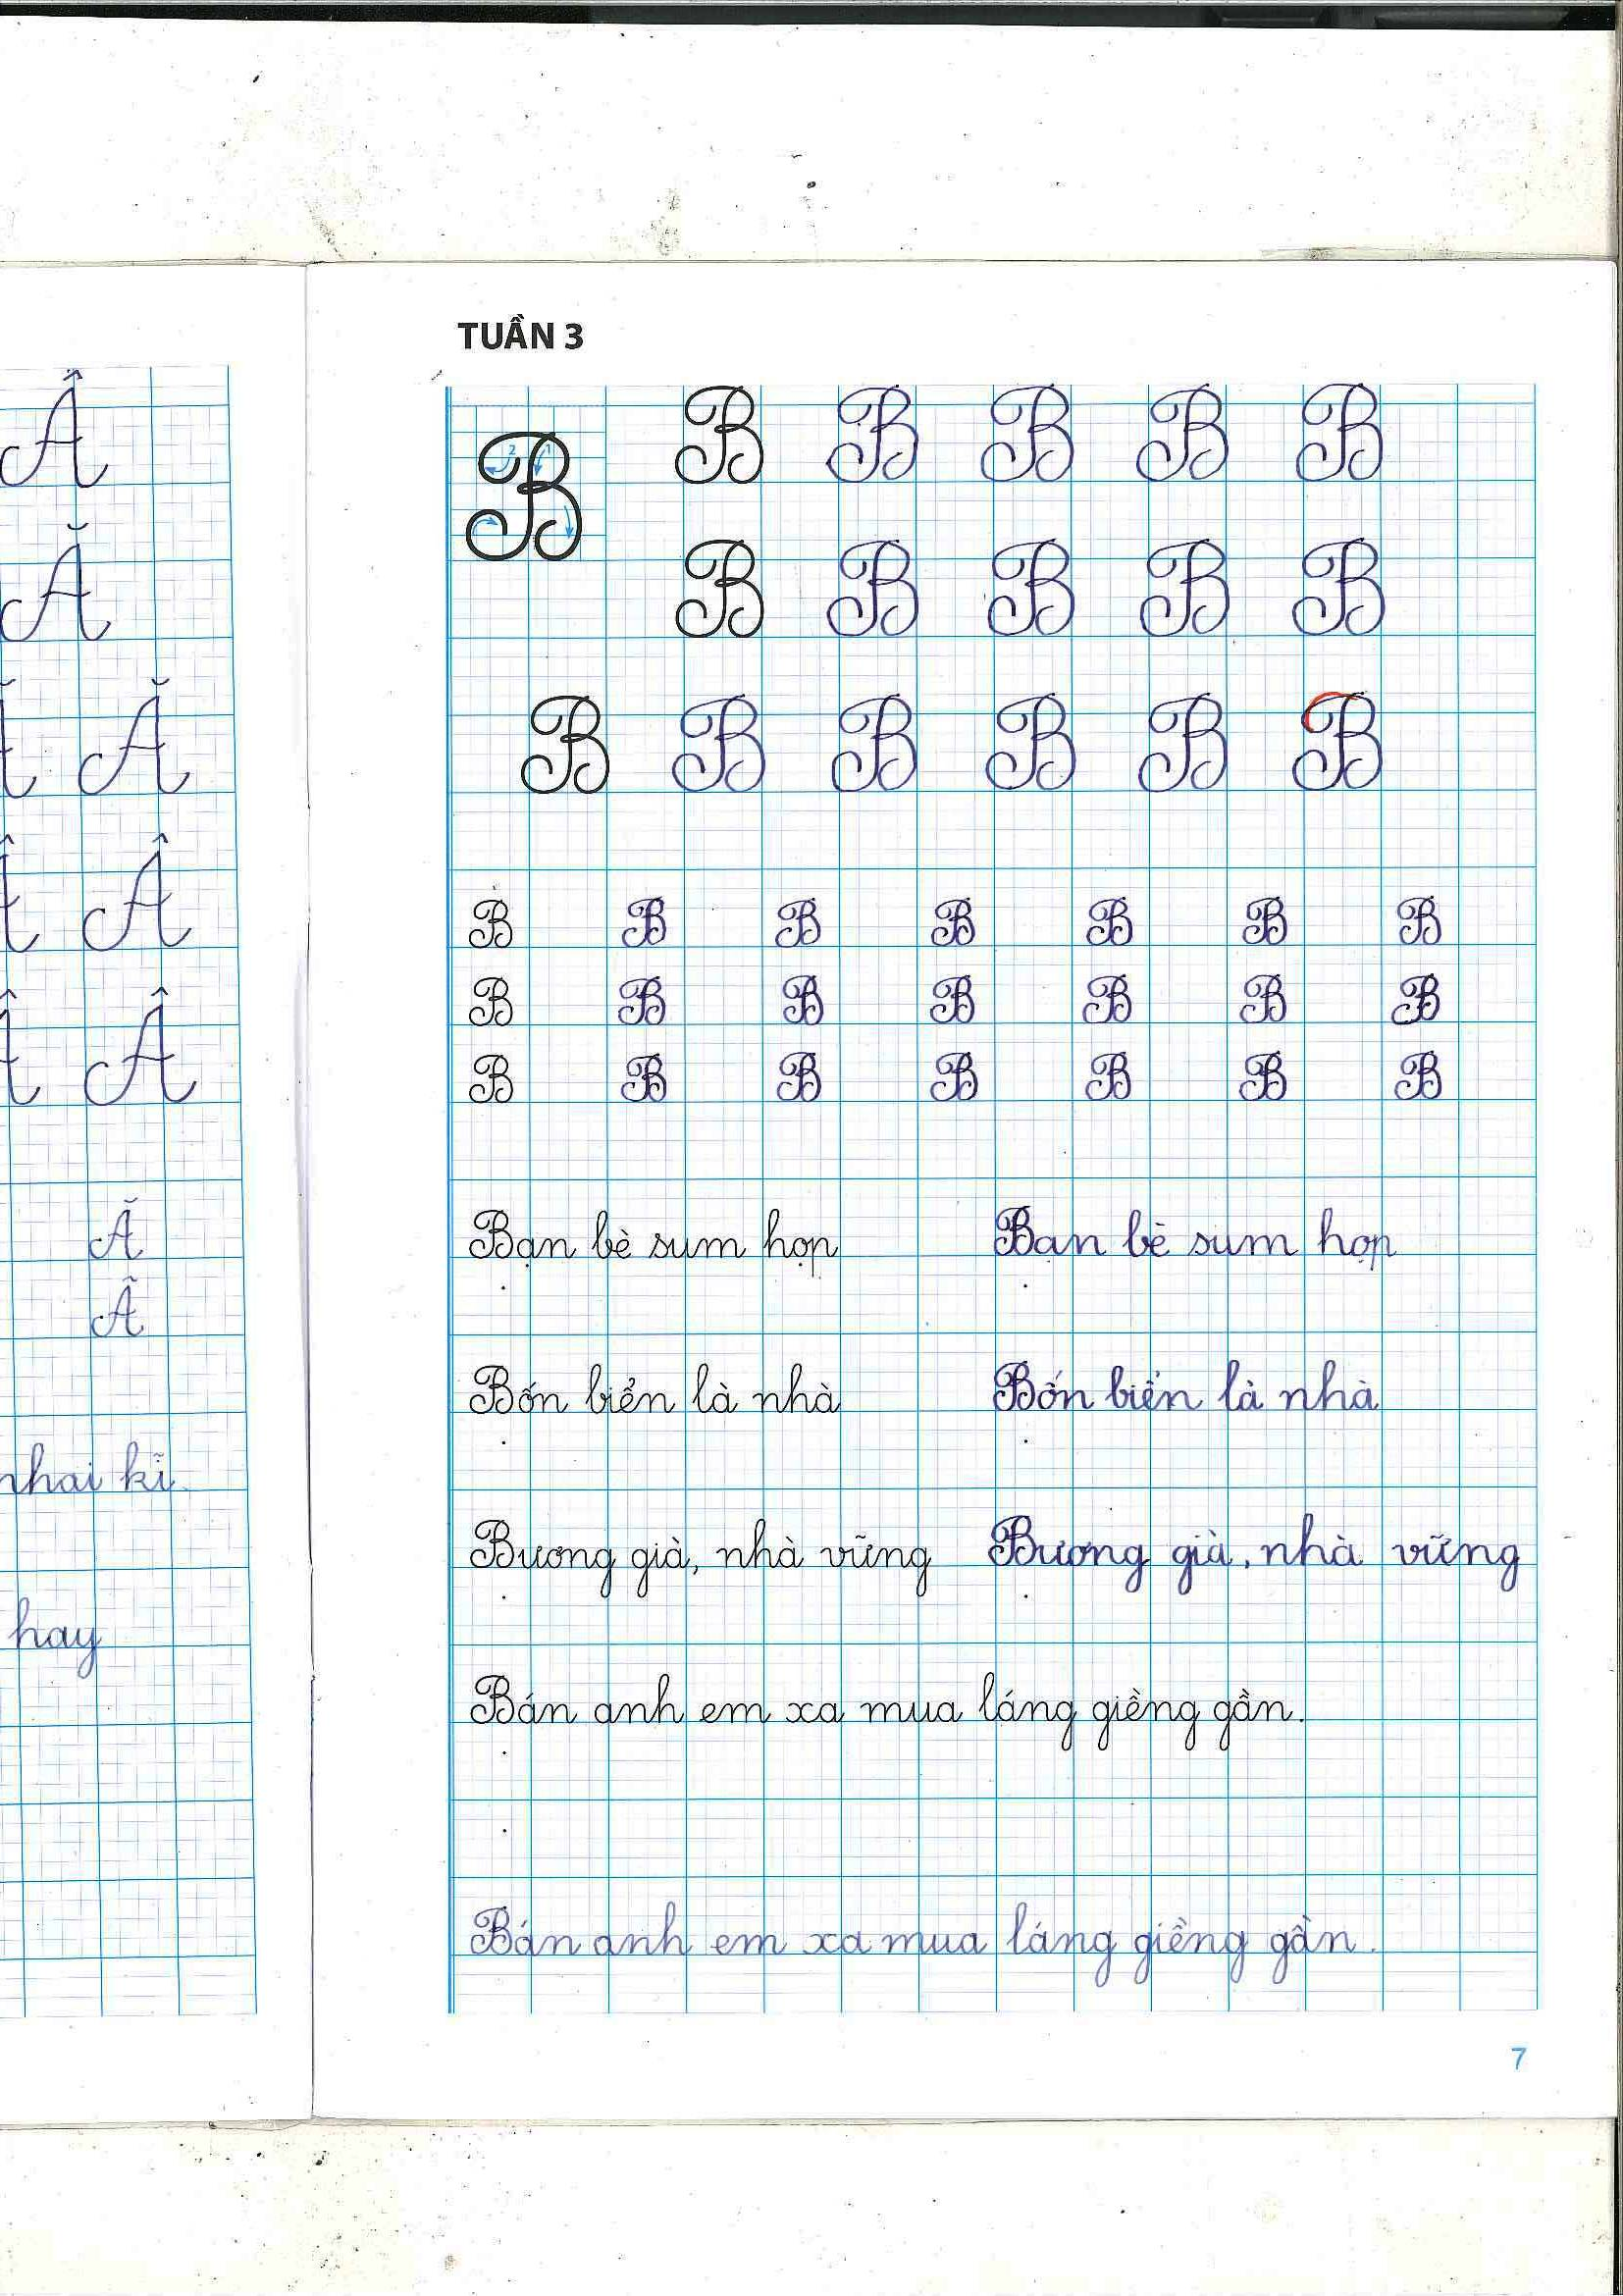 Â
Ă
Ă
Â
Â
Ă
Ẫ
nhai kĩ.
hay
TUẦN 3
B B B B B B
B B B B B
B B B B B B
B B B B B B B
B B B B B B B
B B B B B B B
Bạn bè sum họp Bạn bè sum họp
Bốn biển là nhà Bốn biển là nhà
Bương già, nhà vững Bương già, nhà vững
Bán anh em xa mua láng giềng gần.
Bán anh em xa mua láng giềng gần.
7